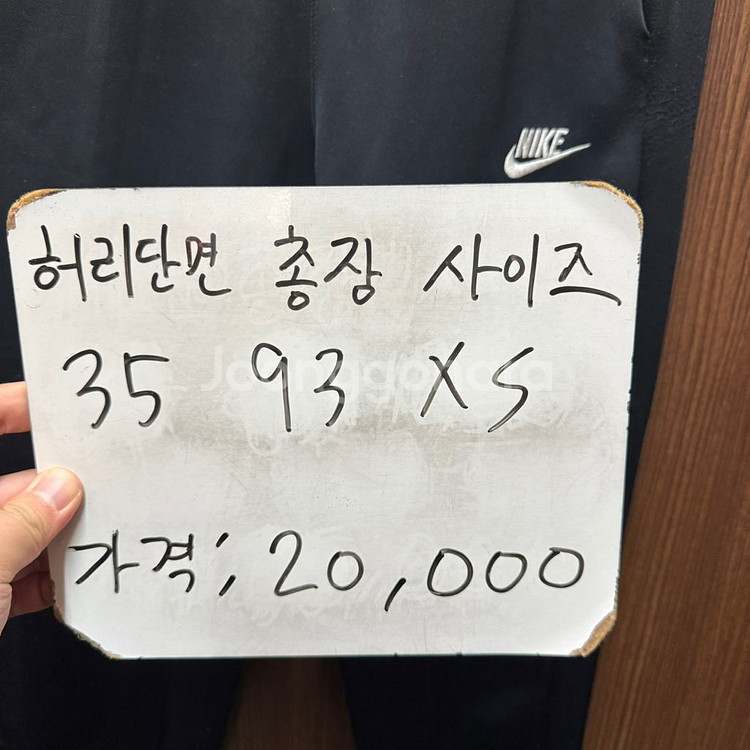 NIKE
허리단면 총장 사이즈
35 93 XS
Joonggonara
가격; 20,000